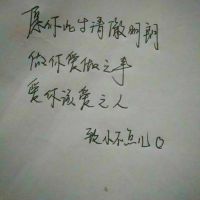 愿你此生清澈明朗
做你爱做之事
爱你该爱之人
致小不点儿